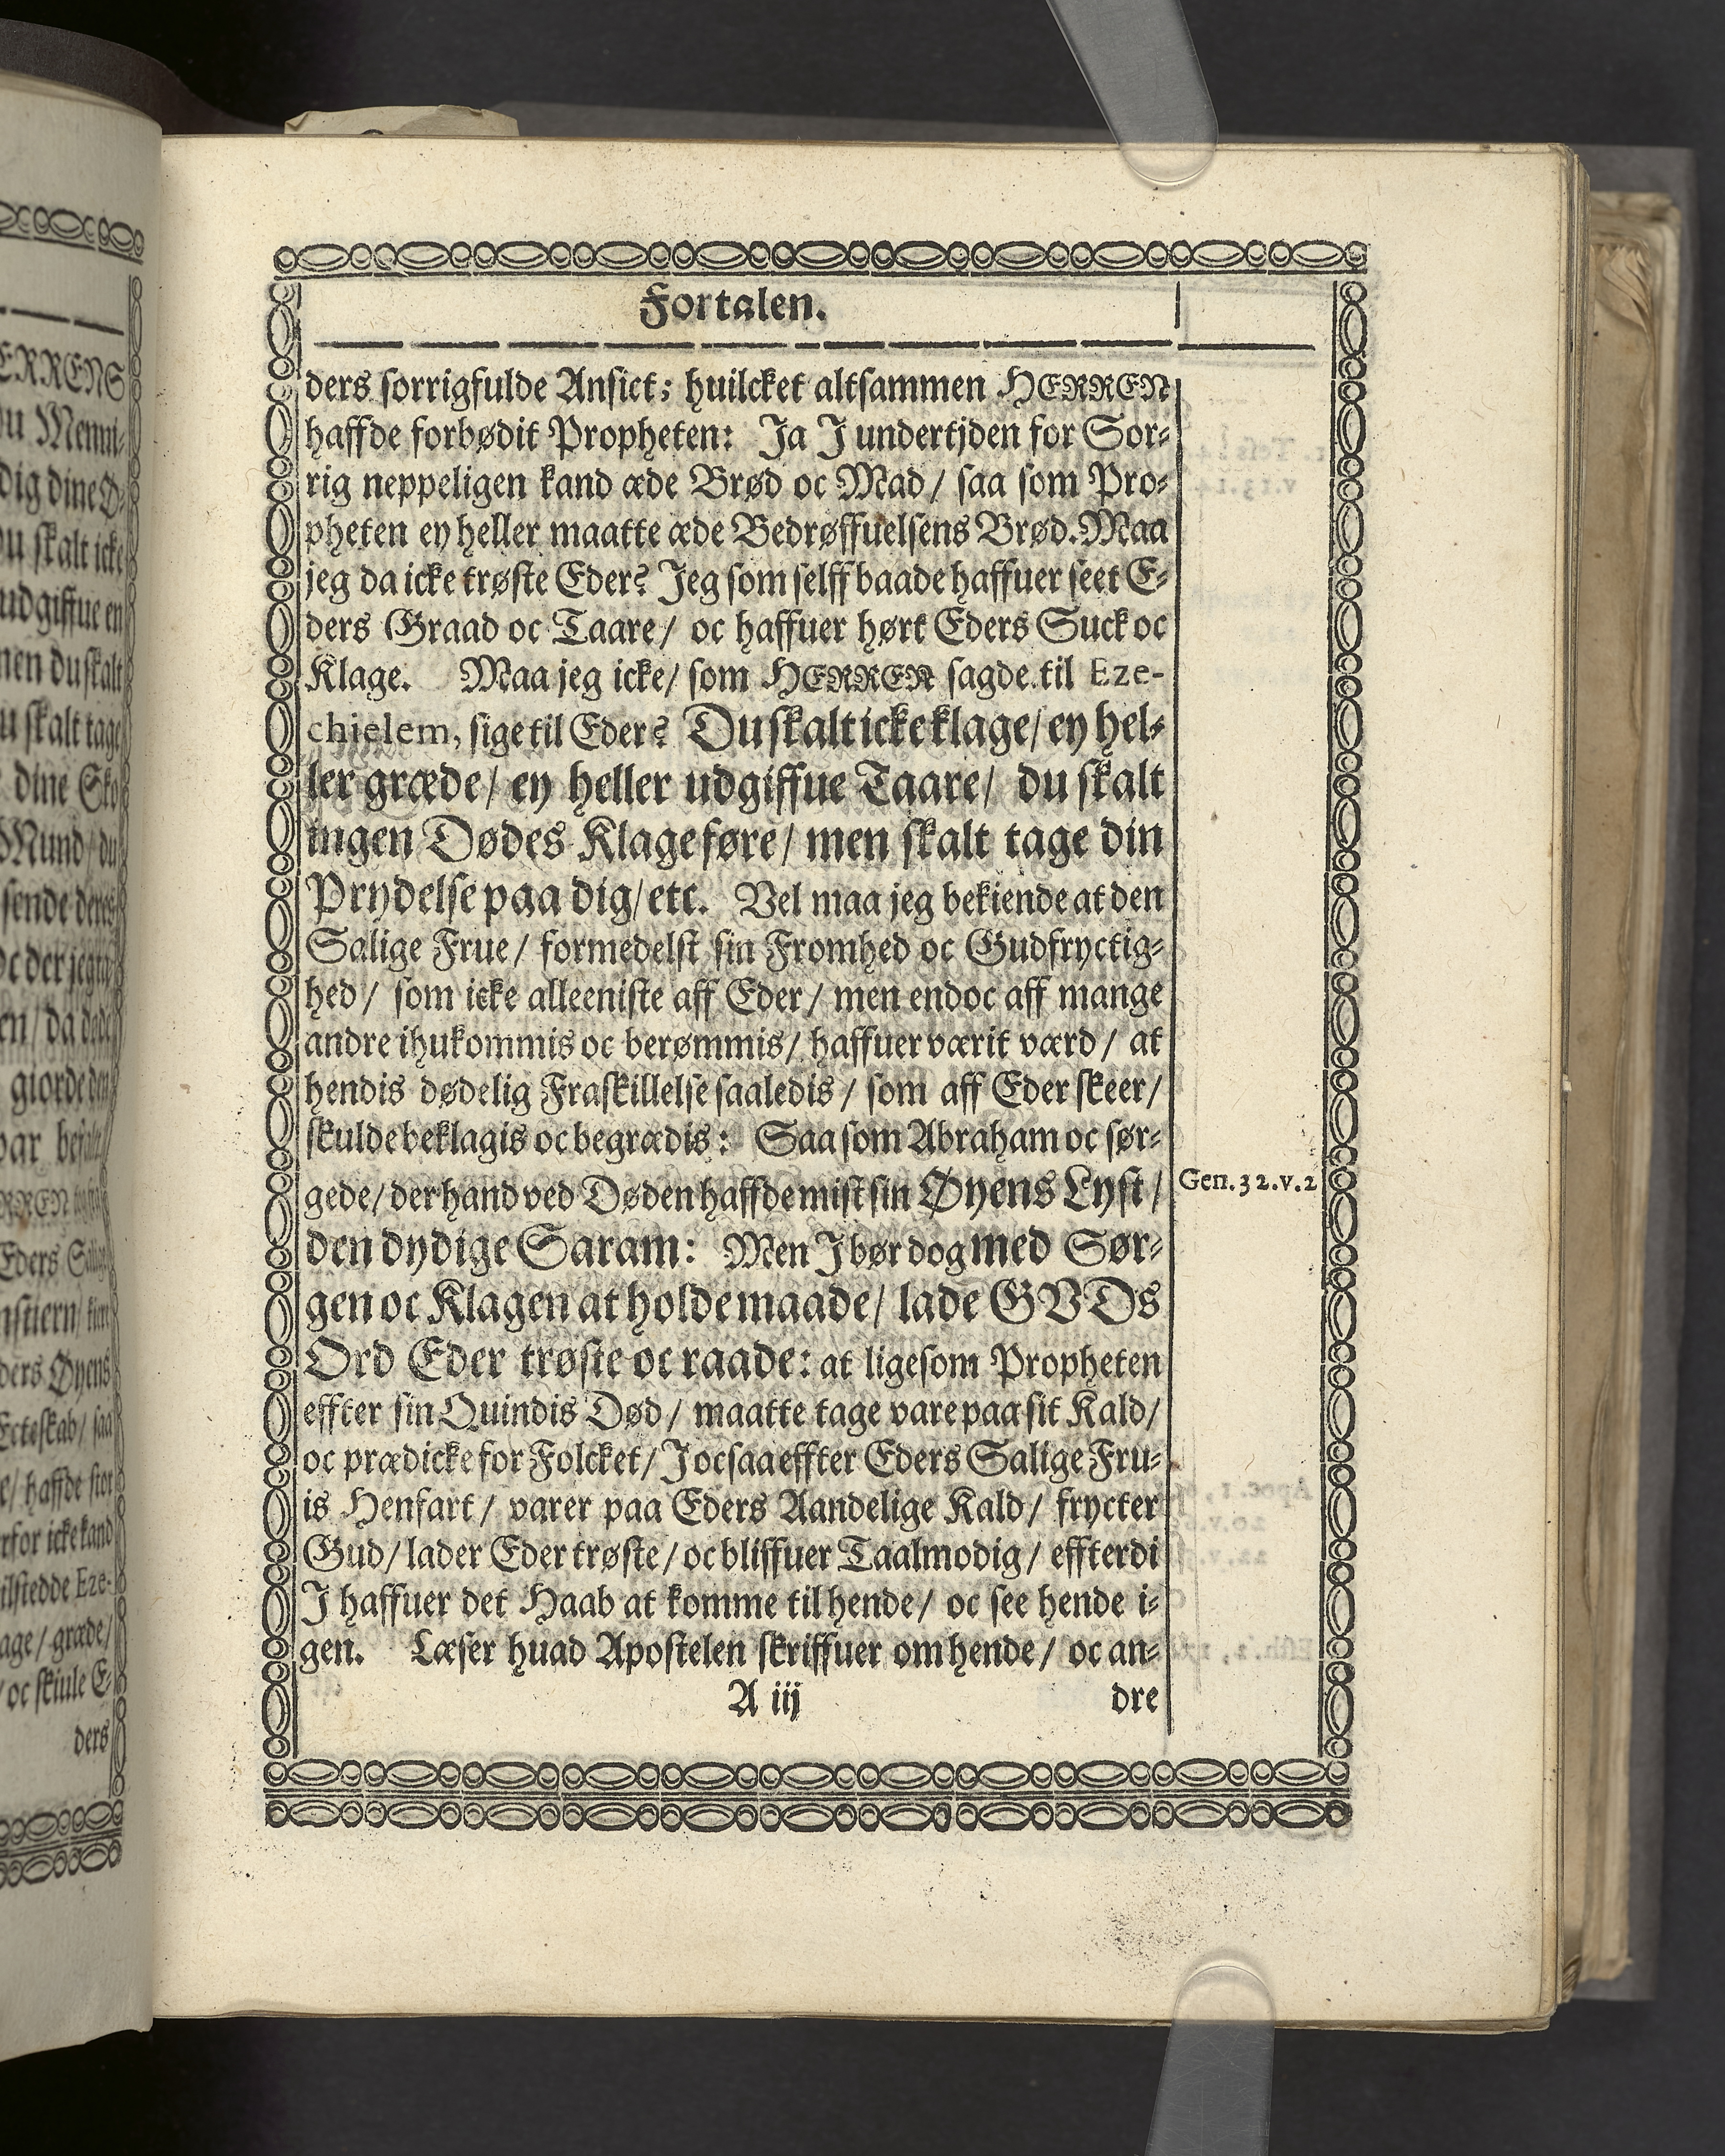 Fortalen.
ders sorrigfulde Ansict; huilcket altsammen HERREN
haffde forbødit Propheten: Ja J undertjden for Sor-
rig neppeligen kand æde Brød oc Mad / saa som Pro-
pheten ey heller maatte æde Bedrøffuelsens Brød. Maa
jeg da icke trøste Eder? Jeg som selff baade haffuer seet E-
ders Graad oc Taare / oc haffuer hørt Eders Suck oc
Klage. Maa jeg icke / som HERREN sagde til Eze-
chielem, sige til Eder? Du skalt icke klage / ey hel-
ler græde / ey heller udgiffue Taare / du skalt
ingen Dødes Klage føre / men skalt tage din
Prydelse paa dig / etc. Vel maa jeg bekiende at den
Salige Frue / formedelst sin Fromhed oc Gudfryctig-
hed / som icke alleeniste aff Eder / men endoc aff mange
andre ihukommis oc berømmis / haffuer værit værd / at
hendis dødelig Fraskillelse saaledis / som aff Eder skeer /
skulde beklagis oc begrædis: Saa som Abraham oc sør-
gede / der hand ved Døden haffde mist sin Øyens Lyst /
Gen. 32. v. 2
den dydige Saram: Men J bør dog med Sør-
gen oc Klagen at holde maade / lade GVDs
Ord Eder trøste oc raade: at ligesom Propheten
effter sin Quindis Død / maatte tage vare paa sit Kald /
oc prædicke for Folcket / J ocsaa effter Eders Salige Fru-
is Henfart / varer paa Eders Aandelige Kald / frycter
Gud / lader Eder trøste / oc bliffuer Taalmodig / effterdi
J haffuer det Haab at komme til hende / oc see hende i-
gen. Læser huad Apostelen skriffuer om hende / oc an-
A iij dre